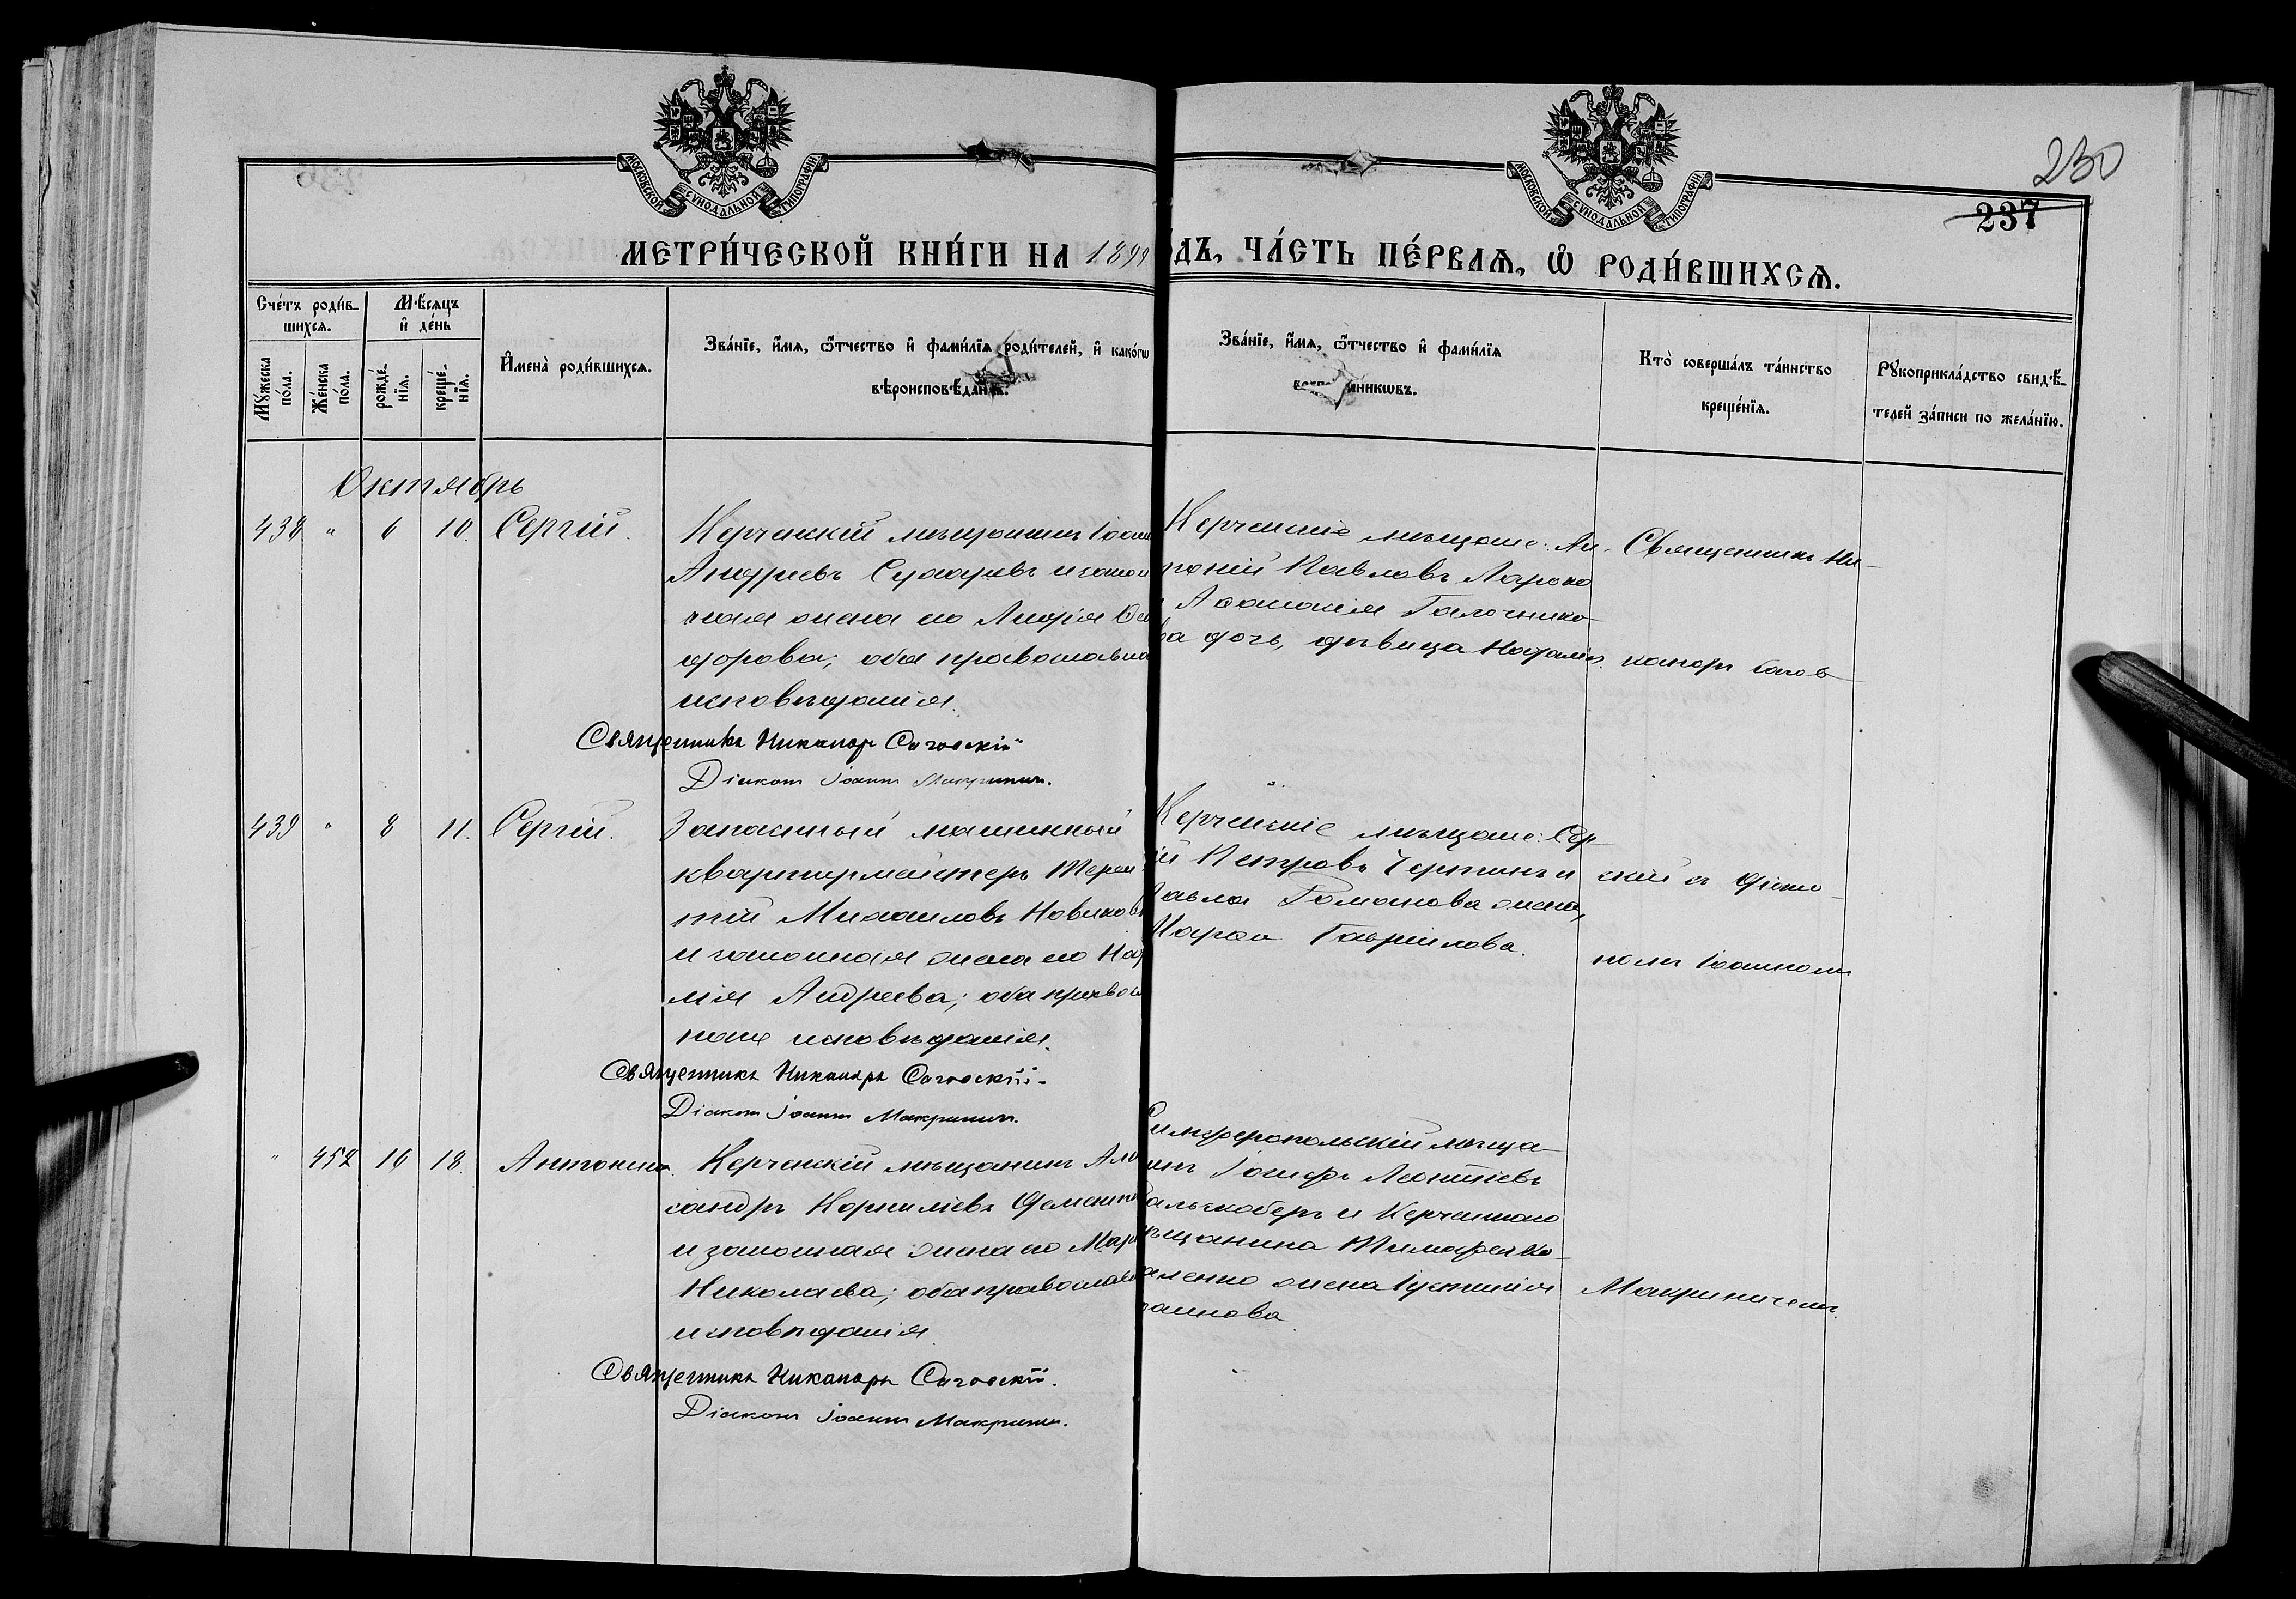 230
237
МОСКОВСКОЙ СУНОДАЛЬНОЙ ТИПОГРАФІИ
МОСКОВСКОЙ СУНОДАЛЬНОЙ ТИПОГРАФІИ
МЕТРИ́ЧЕСКОЙ КНИ́ГИ НА 1899
ДЪ, ЧА́СТЬ ПЕ́РВАѦ, Ѡ҆ РОДИ́ВШИХСѦ.
Сче́тъ роди́в-
шихсѧ.
Мꙋ́жеска
по́ла.
Же́нска
по́ла.
Мѣ́сѧцъ
и҆ де́нь
рожде́-
нїѧ.
креще́-
нїѧ.
И҆мена̀ роди́вшихсѧ.
Зва́нїе, и҆́мѧ, ѻ҆́тчество и҆ фами́лїѧ роди́телей, и҆ како́гѡ
вѣроисповѣ́данїѧ.
Зва́нїе, и҆́мѧ, ѻ҆́тчество и҆ фами́лїѧ
никѡвъ.
Кто̀ соверша́лъ та́инство
креще́нїѧ.
Рꙋкоприкла́дство свидѣ́-
телей за́писи по жела́нїю.
Октябрь
438 " 6 10. Сергій.
Керченскій мѣщанинъ Іоан
Андреевъ и закон
ная жена его Лидія Ѳео
дорова; оба православна
исповѣданія.
Священникъ Никаноръ
Діаконъ Іоаннъ Макриничъ.
Керченскіе мѣщане: Ан-
тоній Павловъ
Аѳанасія
ва дочь, дѣвица Наталія.
Священникъ Ни-
каноръ
439 " 8 11. Сергій.
Запасный машинный
квартирмейстеръ Терен
тій Михаиловъ Новиковъ
и законная жена его Ната
лія Андреева; оба правосл
наго исповѣданія.
Священникъ Никаноръ
Діаконъ Іоаннъ Макриничъ.
Керченскіе мѣщане: Сер-
ій Петровъ и
Павла Романова жена,
Марѳа Гавріилова.
скій съ діако-
номъ Іоанномъ
" 452 16 18. Антонина.
Керченскій мѣщанинъ Але
сандръ Корниліевъ Дементь
и законная жена его Мар
Николаева; оба православ
исповѣданія.
Священникъ Никаноръ
Діаконъ Іоаннъ Макриничъ.
Симферопольскій мѣща-
инъ Іосифъ Леонтіевъ
и Керченскаго
мѣщанина Тимофея Ко-
аленко жена
оаннова
Макриничемъ.